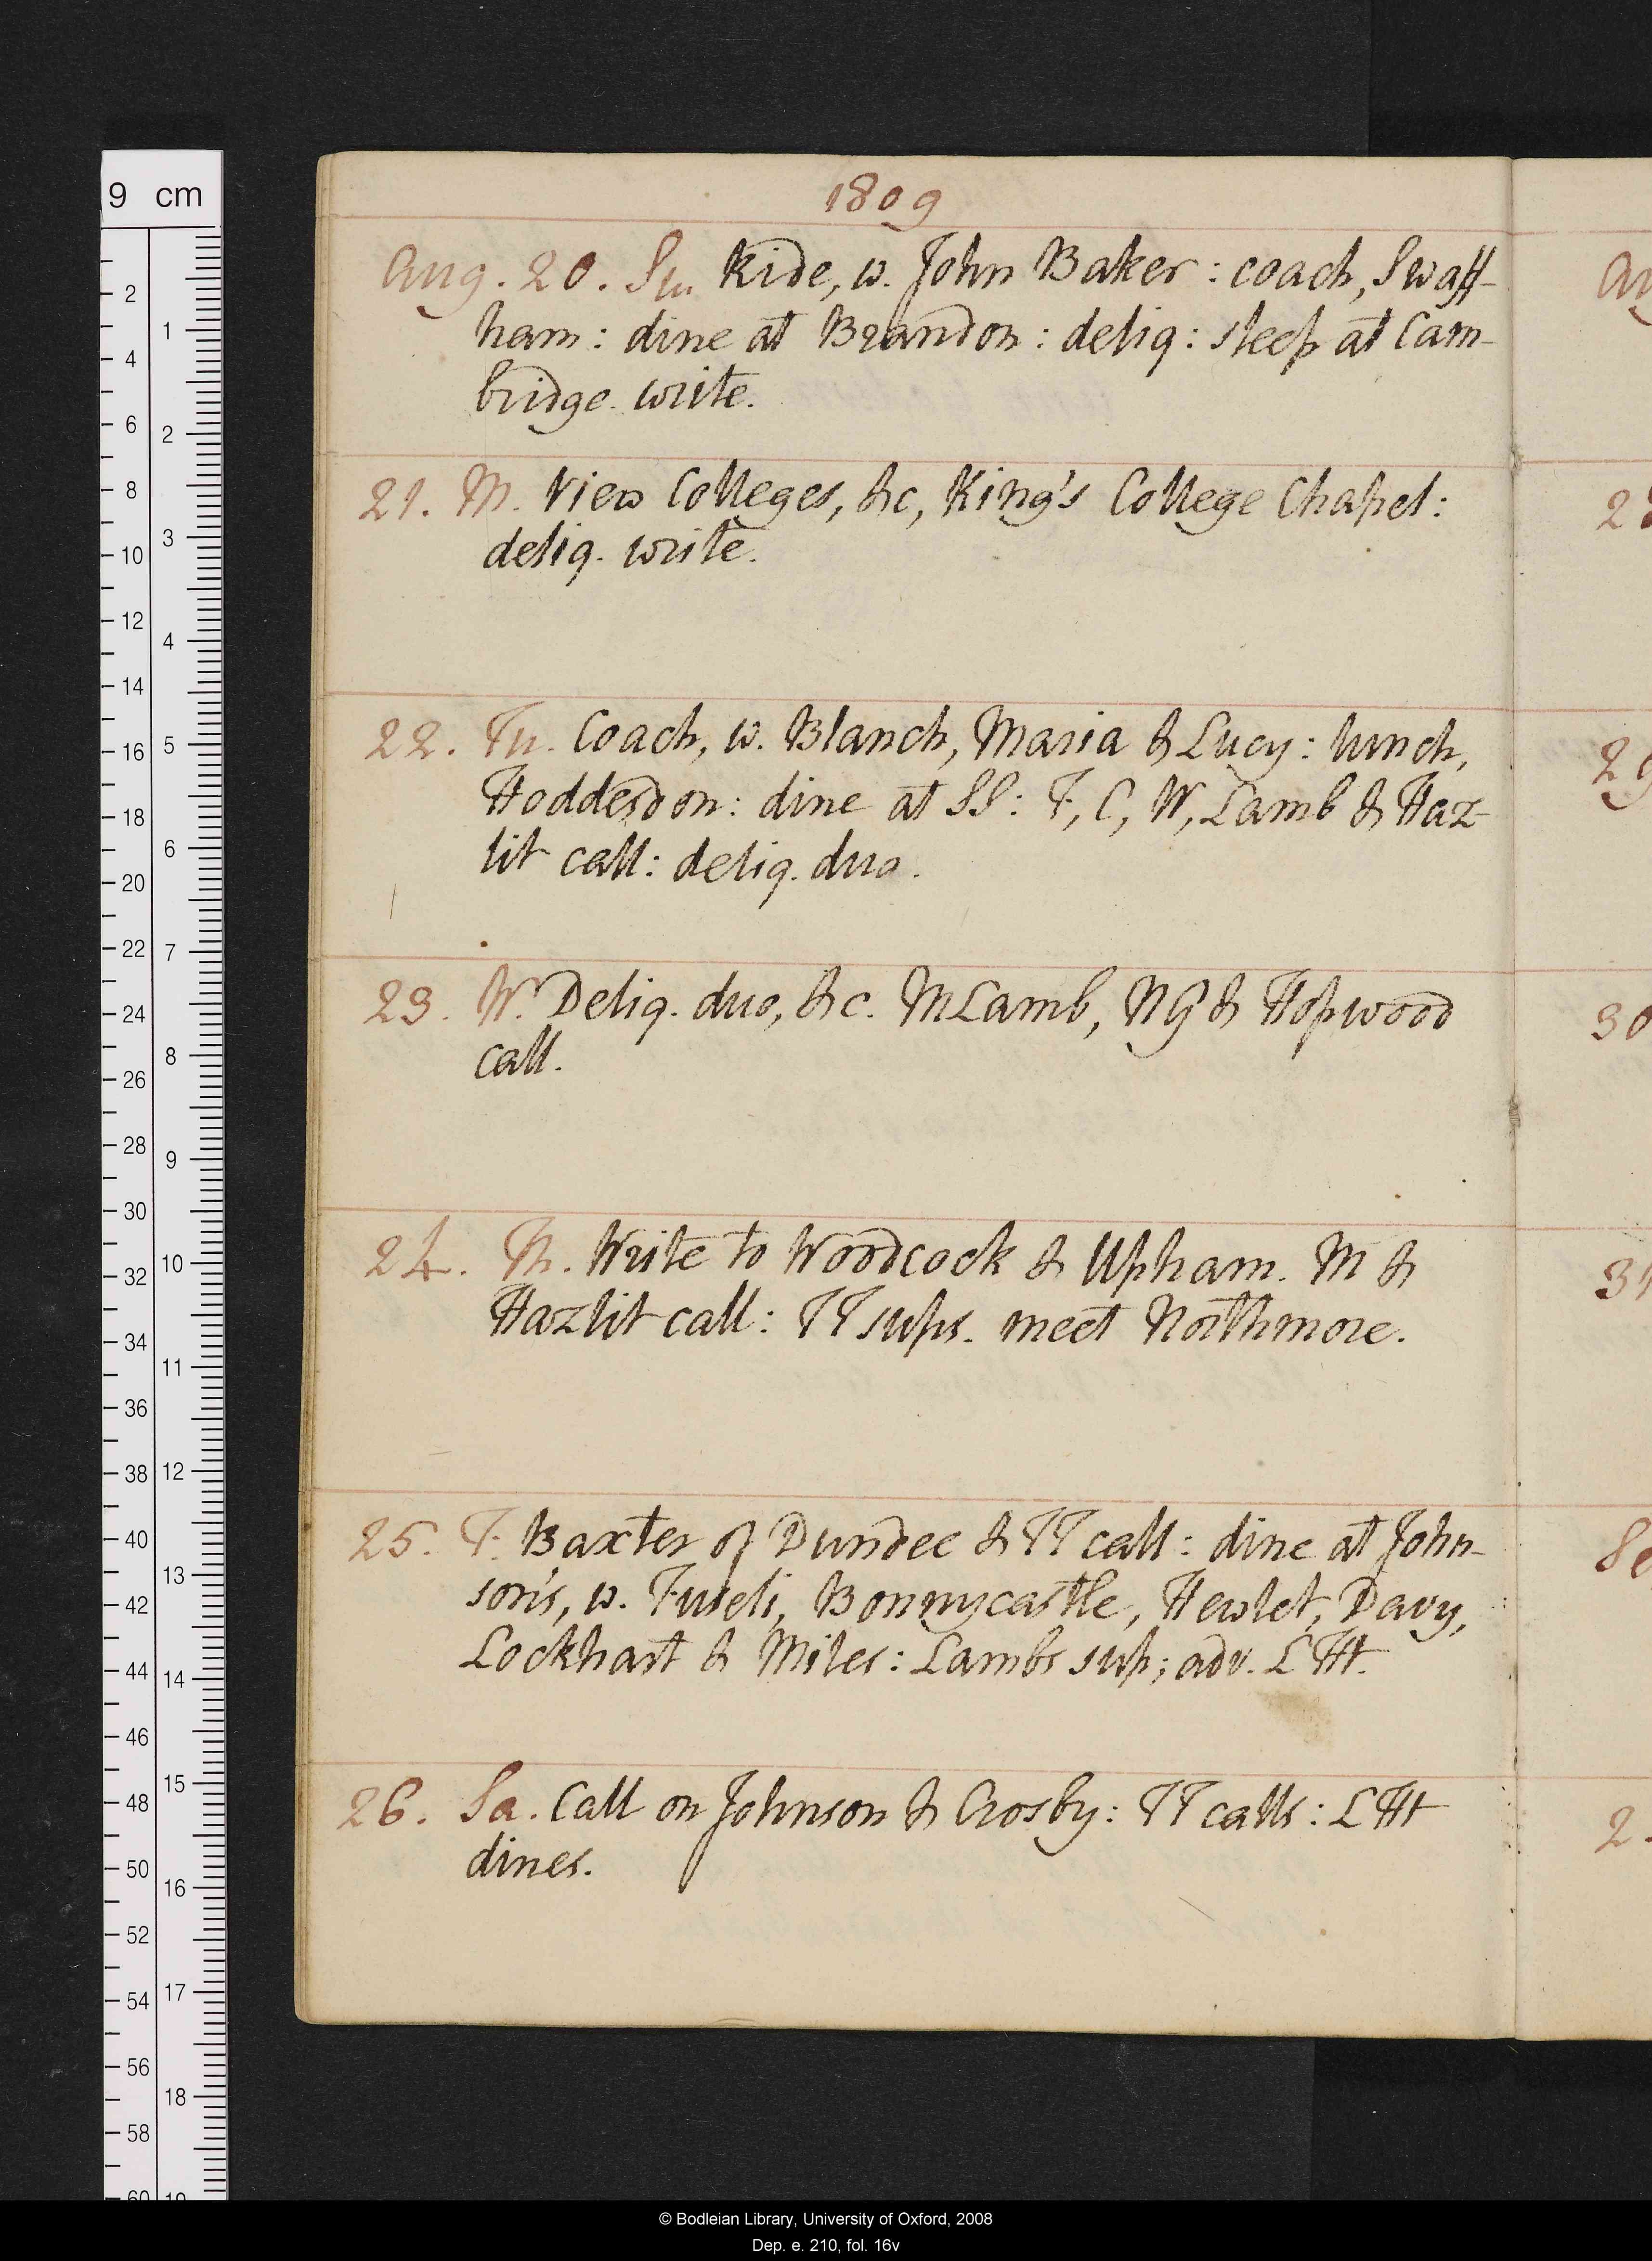 9 cm
1809
Aug. 20. Su. Ride, w. John Baker: coach, Swaff-
ham: dine at Brandon: deliq: sleep at Cam-
bridge. write.
21. M. View Colleges, &c, King's College Chapel:
deliq. write.
22. Tu. Coach, w. Blanch, Maria & Lucy: lunch,
Hoddesdon: dine at SS: F, C, W, Lamb & Haz-
lit call: deliq. duo.
23. W. Deliq. duo, &c. MLamb, NG & Hopwood
call.
24. Th. Write to Woodcock & Upham. M &
Hazlit call: TT sups. meet Northmore.
25. F. Baxter of Dundee & TT call: dine at John-
son's, w. Fuseli, Bonnycastle, Hewlet, Davy,
Lockhart & Miles: Lambs sup; adv. LHt.
26. Sa. Call on Johnson & Crosby: TT calls: LHt
dines.
2 4 6 8 10 12 14 16 18 20 22 24 26 28 30 32 34 36 38 40 42 44 46 48 50 52 54 56 58 60
1 2 3 4 5 6 7 8 9 10 11 12 13 14 15 16 17 18 19
© Bodleian Library, University of Oxford, 2008
Dep. e. 210, fol. 16v